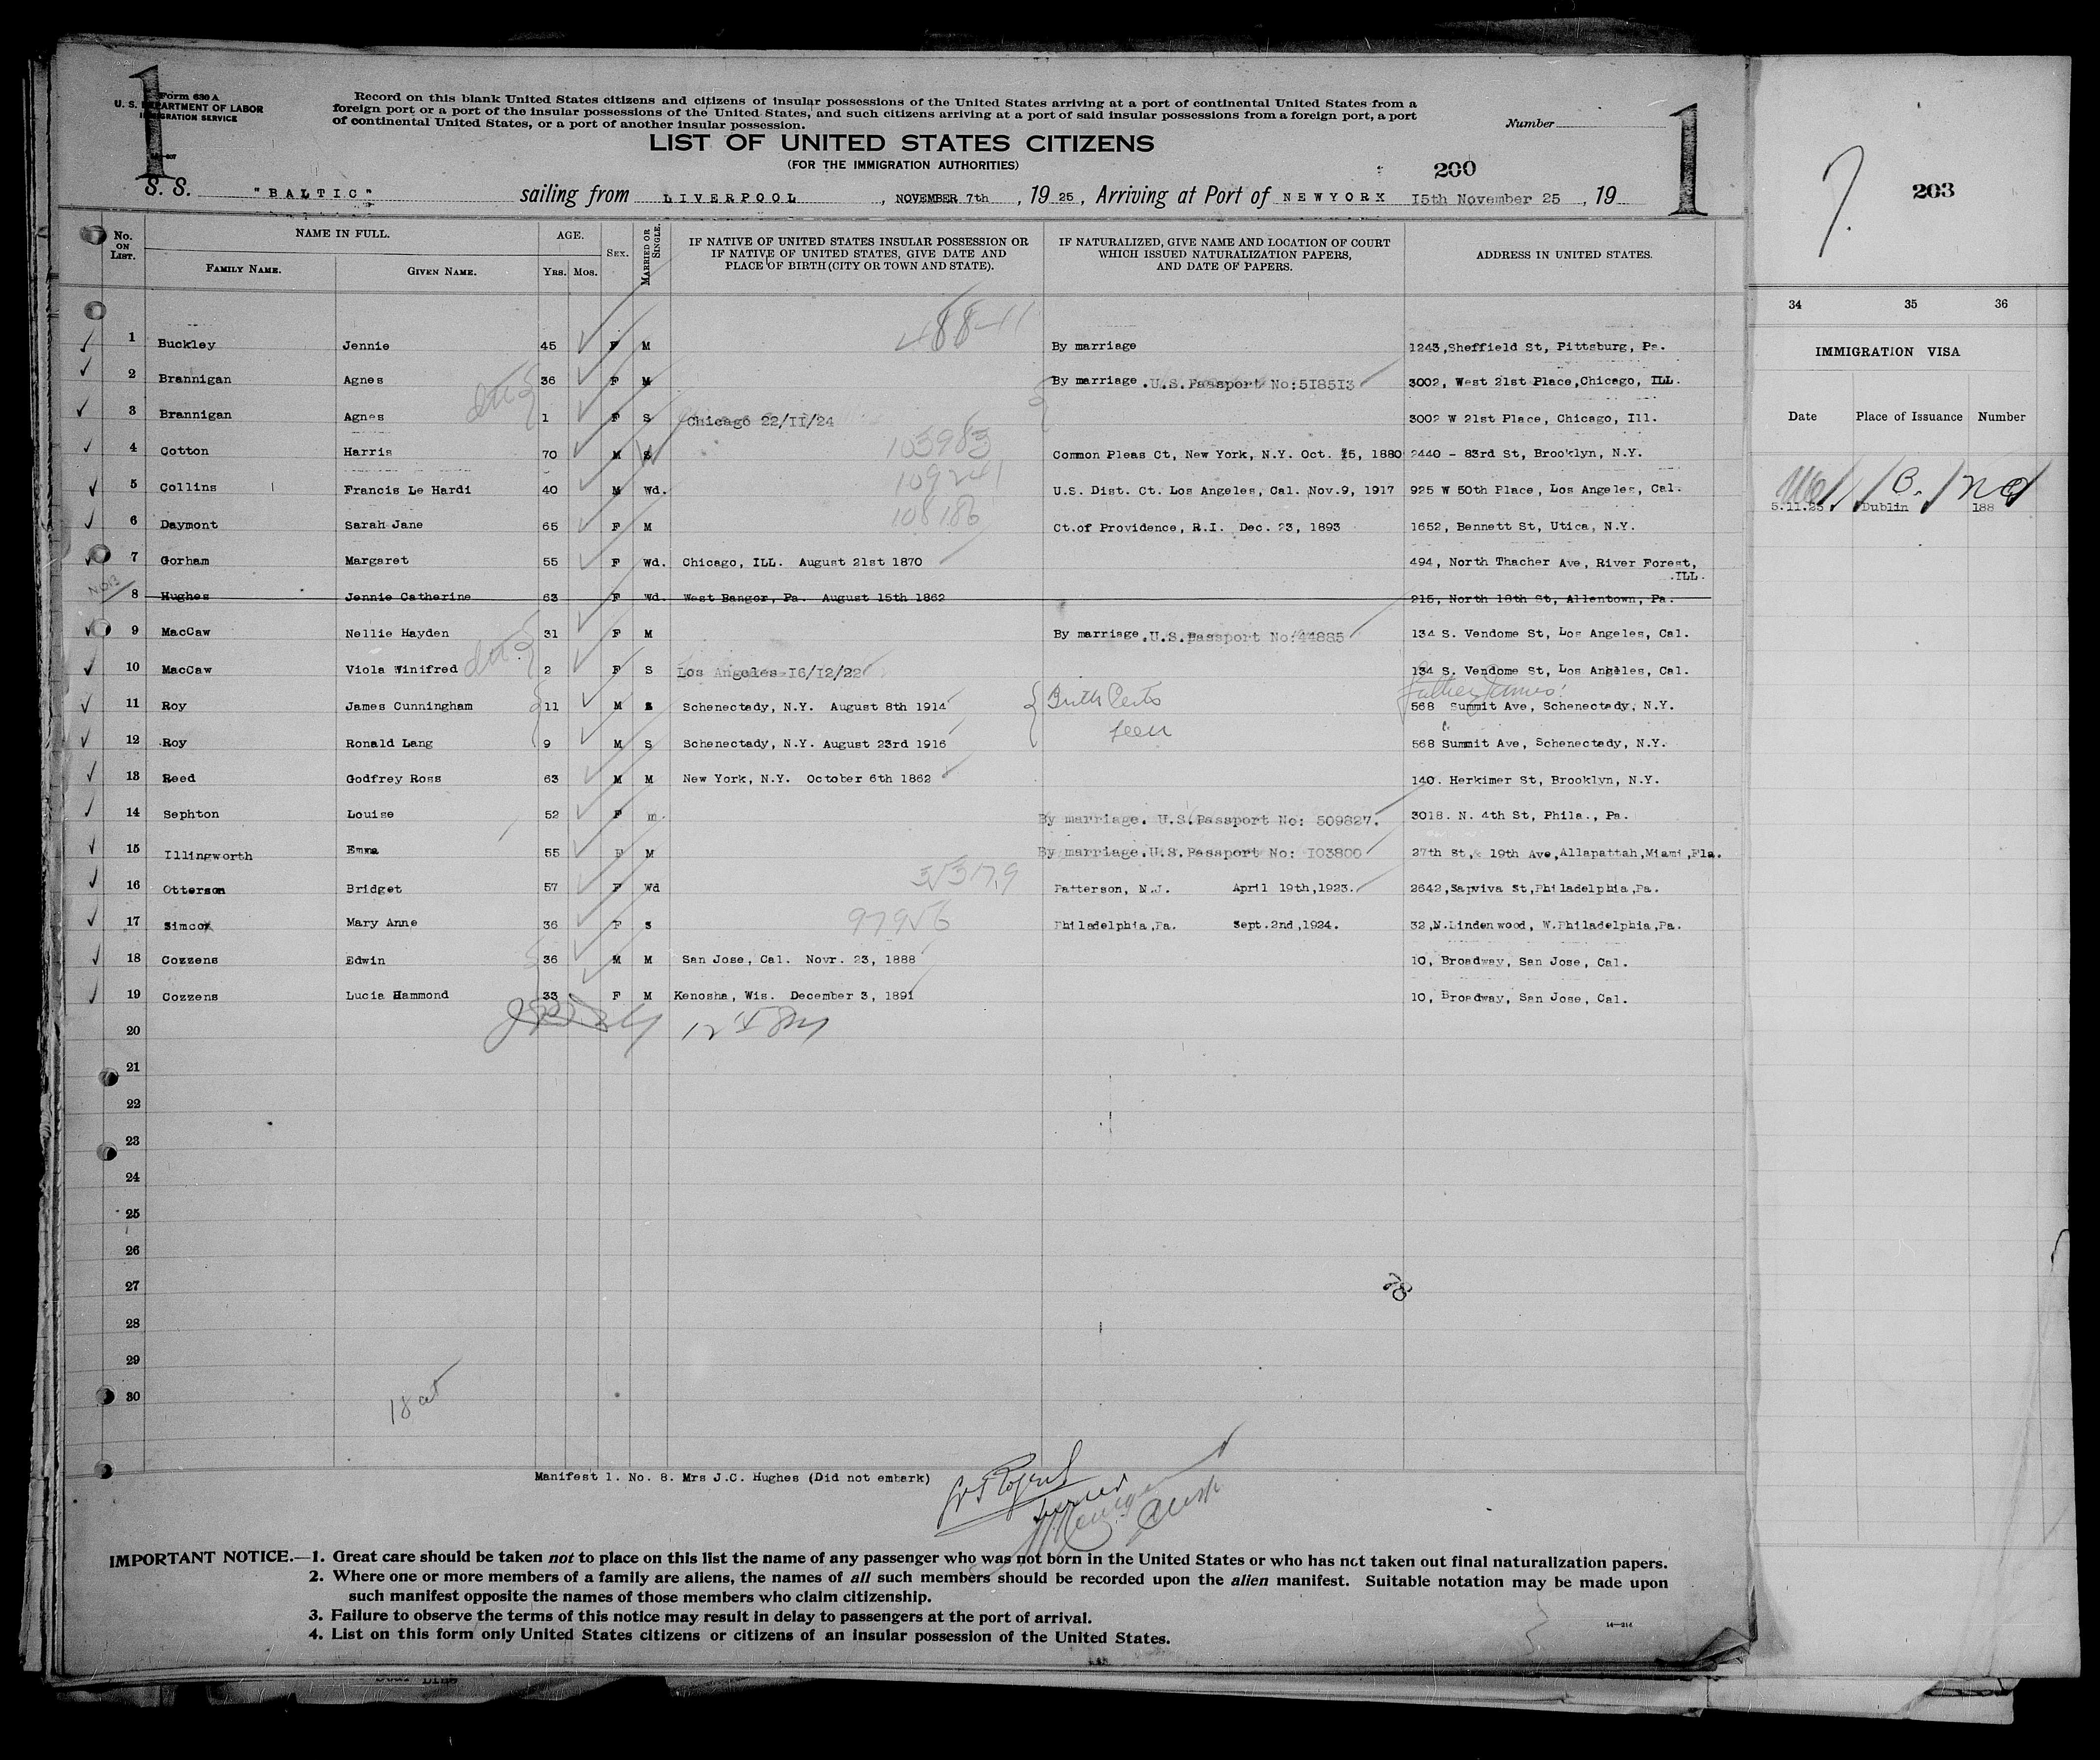 1
Form 630 A
U. S. DEPARTMENT OF LABOR
IMMIGRATION SERVICE
Record on this blank United States citizens and citizens of insular possessions of the United States arriving at a port of continental United States from a
foreign port or a port of the insular possessions of the United States, and such citizens arriving at a port of said insular possessions from a foreign port, a port
of continental United States, or a port of another insular possession.
Number
1
LIST OF UNITED STATES CITIZENS
(FOR THE IMMIGRATION AUTHORITIES)
200
203
S. S. "BALTIC" sailing from LIVERPOOL, NOVEMBER 7th, 19 25, Arriving at Port of NEWYORK 15th November 25, 19
No. ON LIST. NAME IN FULL. AGE. SEX. MARRIED OR SINGLE. IF NATIVE OF UNITED STATES INSULAR POSSESSION OR IF NATIVE OF UNITED STATES, GIVE DATE AND PLACE OF BIRTH (CITY OR TOWN AND STATE). IF NATURALIZED, GIVE NAME AND LOCATION OF COURT WHICH ISSUED NATURALIZATION PAPERS, AND DATE OF PAPERS. ADDRESS IN UNITED STATES.
FAMILY NAME. GIVEN NAME. YRS. MOS.
34 35 36
IMMIGRATION VISA
Date Place of Issuance Number
5.11.25 Dublin 188
488-11
1 Buckley Jennie 45 F M By marriage 1243,Sheffield St, Pittsburg, Pa.
2 Brannigan Agnes 36 F M By marriage.U.S.Passport No:518513 3002, West 21st Place,Chicago, ILL.
3 Brannigan Agnes 1 F S Chicago 22/II/24 3002 W 21st Place, Chicago, Ill.
103983
4 Cotton Harris 70 M S Common Pleas Ct, New York, N.Y. Oct. 15, 1880 2440 - 83rd St, Brooklyn, N.Y.
109241
5 Collins Francis Le Hardi 40 M Wd. U.S. Dist. Ct. Los Angeles, Cal. Nov.9, 1917 925 W 50th Place, Los Angeles, Cal.
108186
6 Daymont Sarah Jane 65 F M Ct.of Providence, R.I. Dec. 23, 1893 1652, Bennett St, Utica, N.Y.
7 Gorham Margaret 55 F Wd. Chicago, ILL. August 21st 1870 494, North Thacher Ave, River Forest,
.ILL.
8 Hughes Jennie Catherine 63 F Wd. West Bangor, Pa. August 15th 1862 215, North 18th St, Allentown, Pa.
9 MacCaw Nellie Hayden 31 F M By marriage.U.S.Passport No:44885 134 S. Vendome St, Los Angeles, Cal.
10 MacCaw Viola Winifred 2 F S Los Angeles-16/12/22 134 S. Vendome St, Los Angeles, Cal.
Father James:
11 Roy James Cunningham 11 M S Schenectady, N.Y. August 8th 1914 Birth Certs 568 Summit Ave, Schenectady, N.Y.
seen
12 Roy Ronald Lang 9 M S Schenectady, N.Y. August 23rd 1916 568 Summit Ave, Schenectady, N.Y.
13 Reed Godfrey Ross 63 M M New York, N.Y. October 6th 1862 140. Herkimer St, Brooklyn, N.Y.
14 Sephton Louise 52 F m. By marriage. U.S.Passport No: 509827. 3018. N. 4th St, Phila., Pa.
15 Illingworth Emma 55 F M By marriage.U.S.Passport No: 103800 27th St,& 19th Ave,Allapattah,Miami,Fla.
16 Otterson Bridget 57 F Wd Patterson, N.J. April 19th,1923. 2642,Sapviva St,Philadelphia,Pa.
97956
17 Simcox Mary Anne 36 F S Philadelphia,Pa. Sept.2nd,1924. 32,N.Lindenwood, W.Philadelphia,Pa.
18 Cozzens Edwin 36 M M San Jose, Cal. Novr. 23, 1888 10, Broadway, San Jose, Cal.
19 Cozzens Lucia Hammond 33 F M Kenosha, Wis. December 3, 1891 10, Broadway, San Jose, Cal.
20
21
22
23
24
25
26
27
28
29
30
Manifest 1. No. 8. Mrs J.C. Hughes (Did not embark)
IMPORTANT NOTICE.—1. Great care should be taken not to place on this list the name of any passenger who was not born in the United States or who has not taken out final naturalization papers.
2. Where one or more members of a family are aliens, the names of all such members should be recorded upon the alien manifest. Suitable notation may be made upon
such manifest opposite the names of those members who claim citizenship.
3. Failure to observe the terms of this notice may result in delay to passengers at the port of arrival.
4. List on this form only United States citizens or citizens of an insular possession of the United States.
14—214